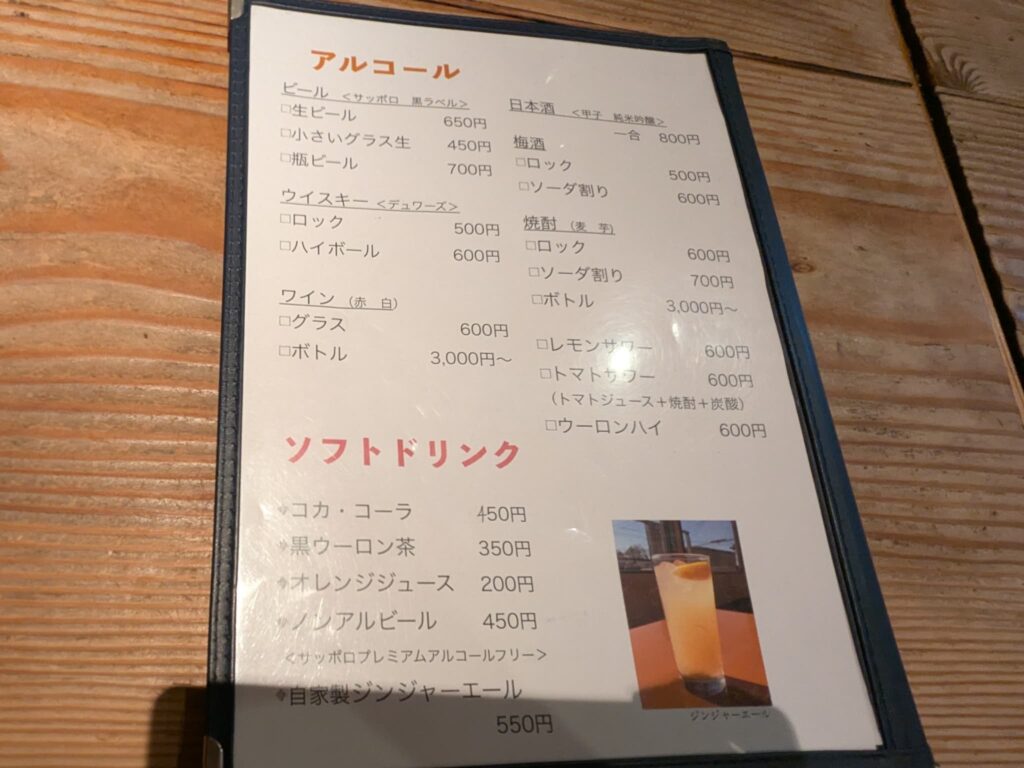 アルコール
ビール <サッポロ 黒ラベル>
□生ビール 650円
□小さいグラス生 450円
□瓶ビール 700円
ウイスキー <デュワーズ>
□ロック 500円
□ハイボール 600円
ワイン (赤 白)
□グラス 600円
□ボトル 3,000円~
日本酒 <甲子 純米吟醸>
一合 800円
梅酒
□ロック 500円
□ソーダ割り 600円
焼酎 (麦 芋)
□ロック 600円
□ソーダ割り 700円
□ボトル 3,000円~
□レモンサワー 600円
□トマトサワー 600円
(トマトジュース+焼酎+炭酸)
□ウーロンハイ 600円
ソフトドリンク
コカ・コーラ 450円
黒ウーロン茶 350円
オレンジジュース 200円
ノンアルビール 450円
<サッポロプレミアムアルコールフリー>
自家製ジンジャーエール
550円
ジンジャーエール